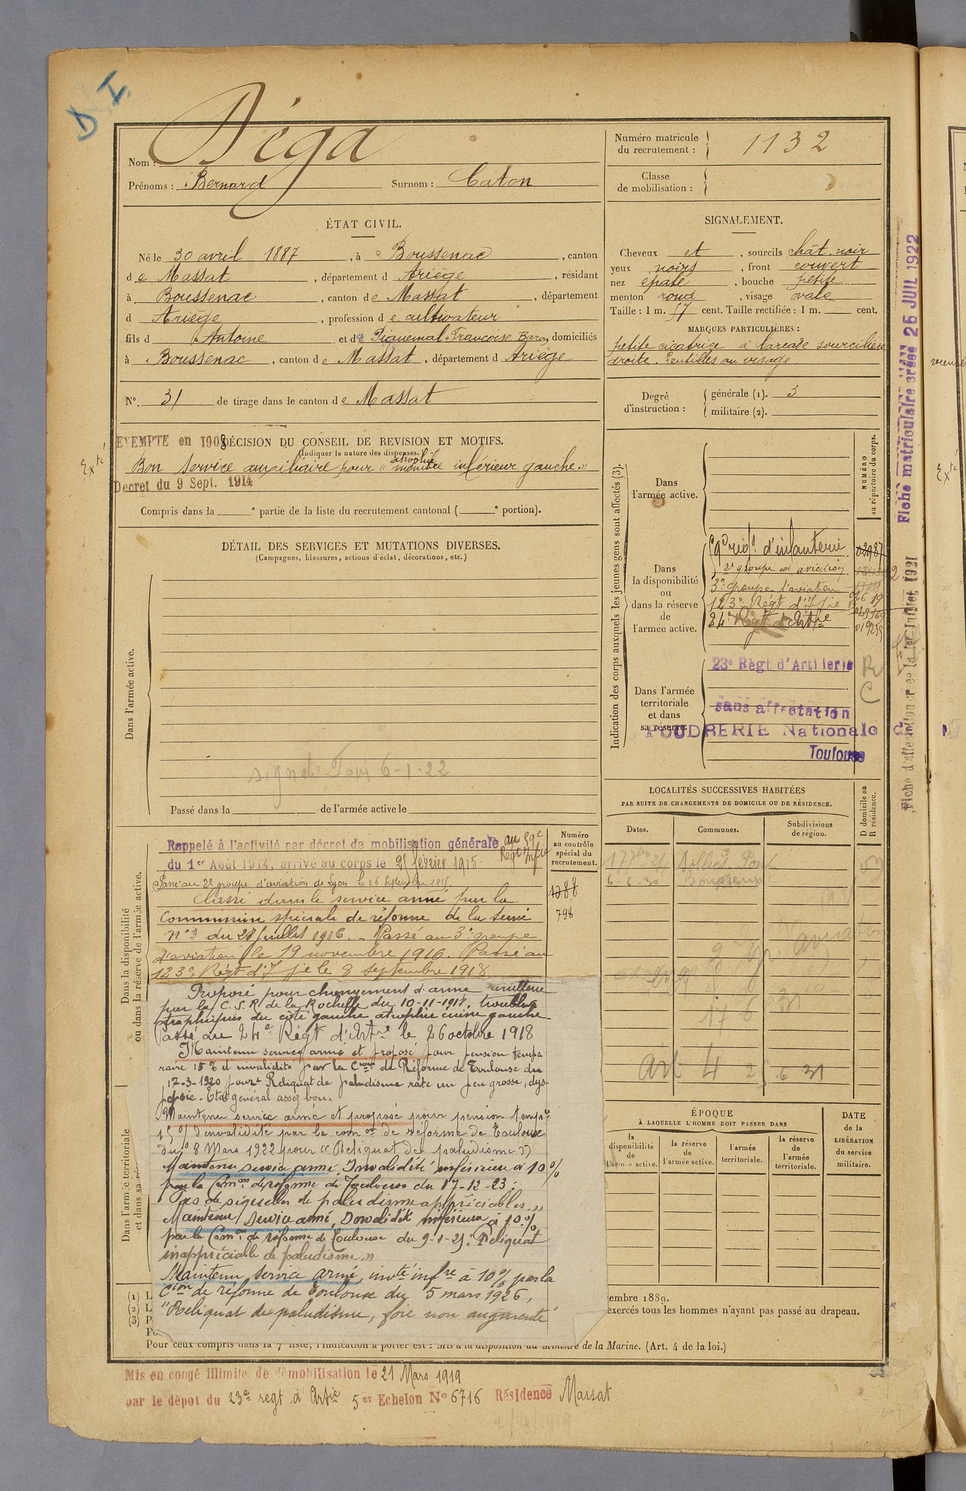 D I
Nom : Déga
Prénoms : Bernard Surnom : Caton
Numéro matricule du recrutement : 1132
Classe de mobilisation :
ÉTAT CIVIL.
Né le 30 avril 1887, à Boussenac, canton
de Massat, département d Ariège, résidant
à Boussenac, canton de Massat, département
d Ariège, profession de cultivateur
fils d Antoine et de Piquemal Francoise Baron, domiciliés
à Boussenac, canton de Massat, département d Ariège
N° 31 de tirage dans le canton de Massat
SIGNALEMENT.
Cheveux et, sourcils chât. noir
yeux noirs, front couvert
nez épaté, bouche petite
menton rond, visage ovale
Taille : 1 m. 57 cent. Taille rectifiée : 1 m. cent.
MARQUES PARTICULIÈRES :
petite cicatrice à l'arcade sourcilière
droite. Lentilles au visage
Degré d'instruction : générale (1). 3
militaire (2).
EXEMPTE en 1908 DÉCISION DU CONSEIL DE REVISION ET MOTIFS.
(Indiquer la nature des dispenses.)
Bon service auxiliaire pour " atrophie membre inférieur gauche. "
Decret du 9 Sept. 1914
Compris dans la e partie de la liste du recrutement cantonal ( e portion).
DÉTAIL DES SERVICES ET MUTATIONS DIVERSES.
(Campagnes, blessures, actions d'éclat, décorations, etc.)
Dans l'armée active.
Passé dans la de l'armée active le
Indication des corps auxquels les jeunes gens sont affectés (3).
NUMÉRO au répertoire du corps.
Dans l'armée active.
Dans la disponibilité ou dans la réserve de l'armée active.
59e régt d'infanterie
2e groupe d'aviation
3e groupe d'aviation
123e Régt d'Iie
24e Régt d'Artie
Dans l'armée territoriale et dans sa réserve.
23e Régt d'Artillerie
sans affectation
POUDRERIE Nationale de
Toulouse
R C
Fiche matriculaire créée 25 JUIL 1922
LOCALITÉS SUCCESSIVES HABITÉES
PAR SUITE DE CHANGEMENTS DE DOMICILE OU DE RÉSIDENCE.
Dates. Communes. Subdivisions de région. D domicile ou R résidence.
Dans la disponibilité ou dans la réserve de l'armée active.
Numéro au contrôle spécial du recrutement.
Rappelé à l'activité par décret de mobilisation générale au 59e
du 1er Août 1914, arrivé au corps le 21 février 1915 Régt Infie
Passé au 2e groupe d'aviation de Lyon le 16 septembre 1915
Classé dans le service armé par la
Commission spéciale de réforme de la Seine
n° 3 du 28 Juillet 1916. Passé au 3e groupe
d'aviation le 19 novembre 1916. Passé au
123e Régt d'Iie le 8 septembre 1918
798
Proposé pour changement d'arme artillerie
par la C. S. R. de la Rochelle du 10-11-1917, troubles
trophiques du côté gauche atrophie cuisse gauche
Passé au 24e Régt d'Artie le 26 octobre 1918
Maintenu service armé et proposé pour pension tempo
raire 15 % d'invalidité par la Comon de Réforme de Toulouse du
12-3-1920 pour Reliquat de paludisme rate un peu grosse, dys
pepsie. Etat général assez bon.
Maintenu service armé et proposé pour pension tempre
15 % d'invalidité par la comon de réforme de Toulouse
du 8 Mars 1922 pour "Reliquat de paludisme"
Maintenu service armé, Invalidité inférieure à 10 %
par la Comon de réforme de Toulouse du 17-12-23 :
Pas de séquelles de paludisme appréciables. "
Maintenu service armé, Invalidité inférieure à 10 %
par la Comon de réforme de Toulouse du 9-1-25. "Reliquat
inappréciable de paludisme "
Maintenu service armé, invté infre à 10 % par la
Cion de réforme de Toulouse du 5 mars 1926,
"Reliquat de paludisme, foie non augmenté
Dans l'armée territoriale et dans sa
ÉPOQUE
À LAQUELLE L'HOMME DOIT PASSER DANS
la disponibilité de l'armée active. la réserve de l'armée active. l'armée territoriale. la réserve de l'armée territoriale.
DATE de la LIBÉRATION du service militaire.
embre 1889.
exercés tous les hommes n'ayant pas passé au drapeau.
Pour ceux compris dans la 7e liste, l'indication à porter est : Mis à la disposition du Ministre de la Marine. (Art. 4 de la loi.)
Mis en congé illimité de démobilisation le 21 Mars 1919
par le dépot du 23e regt d'Artie 5e Echelon No 6716 Résidence Massat